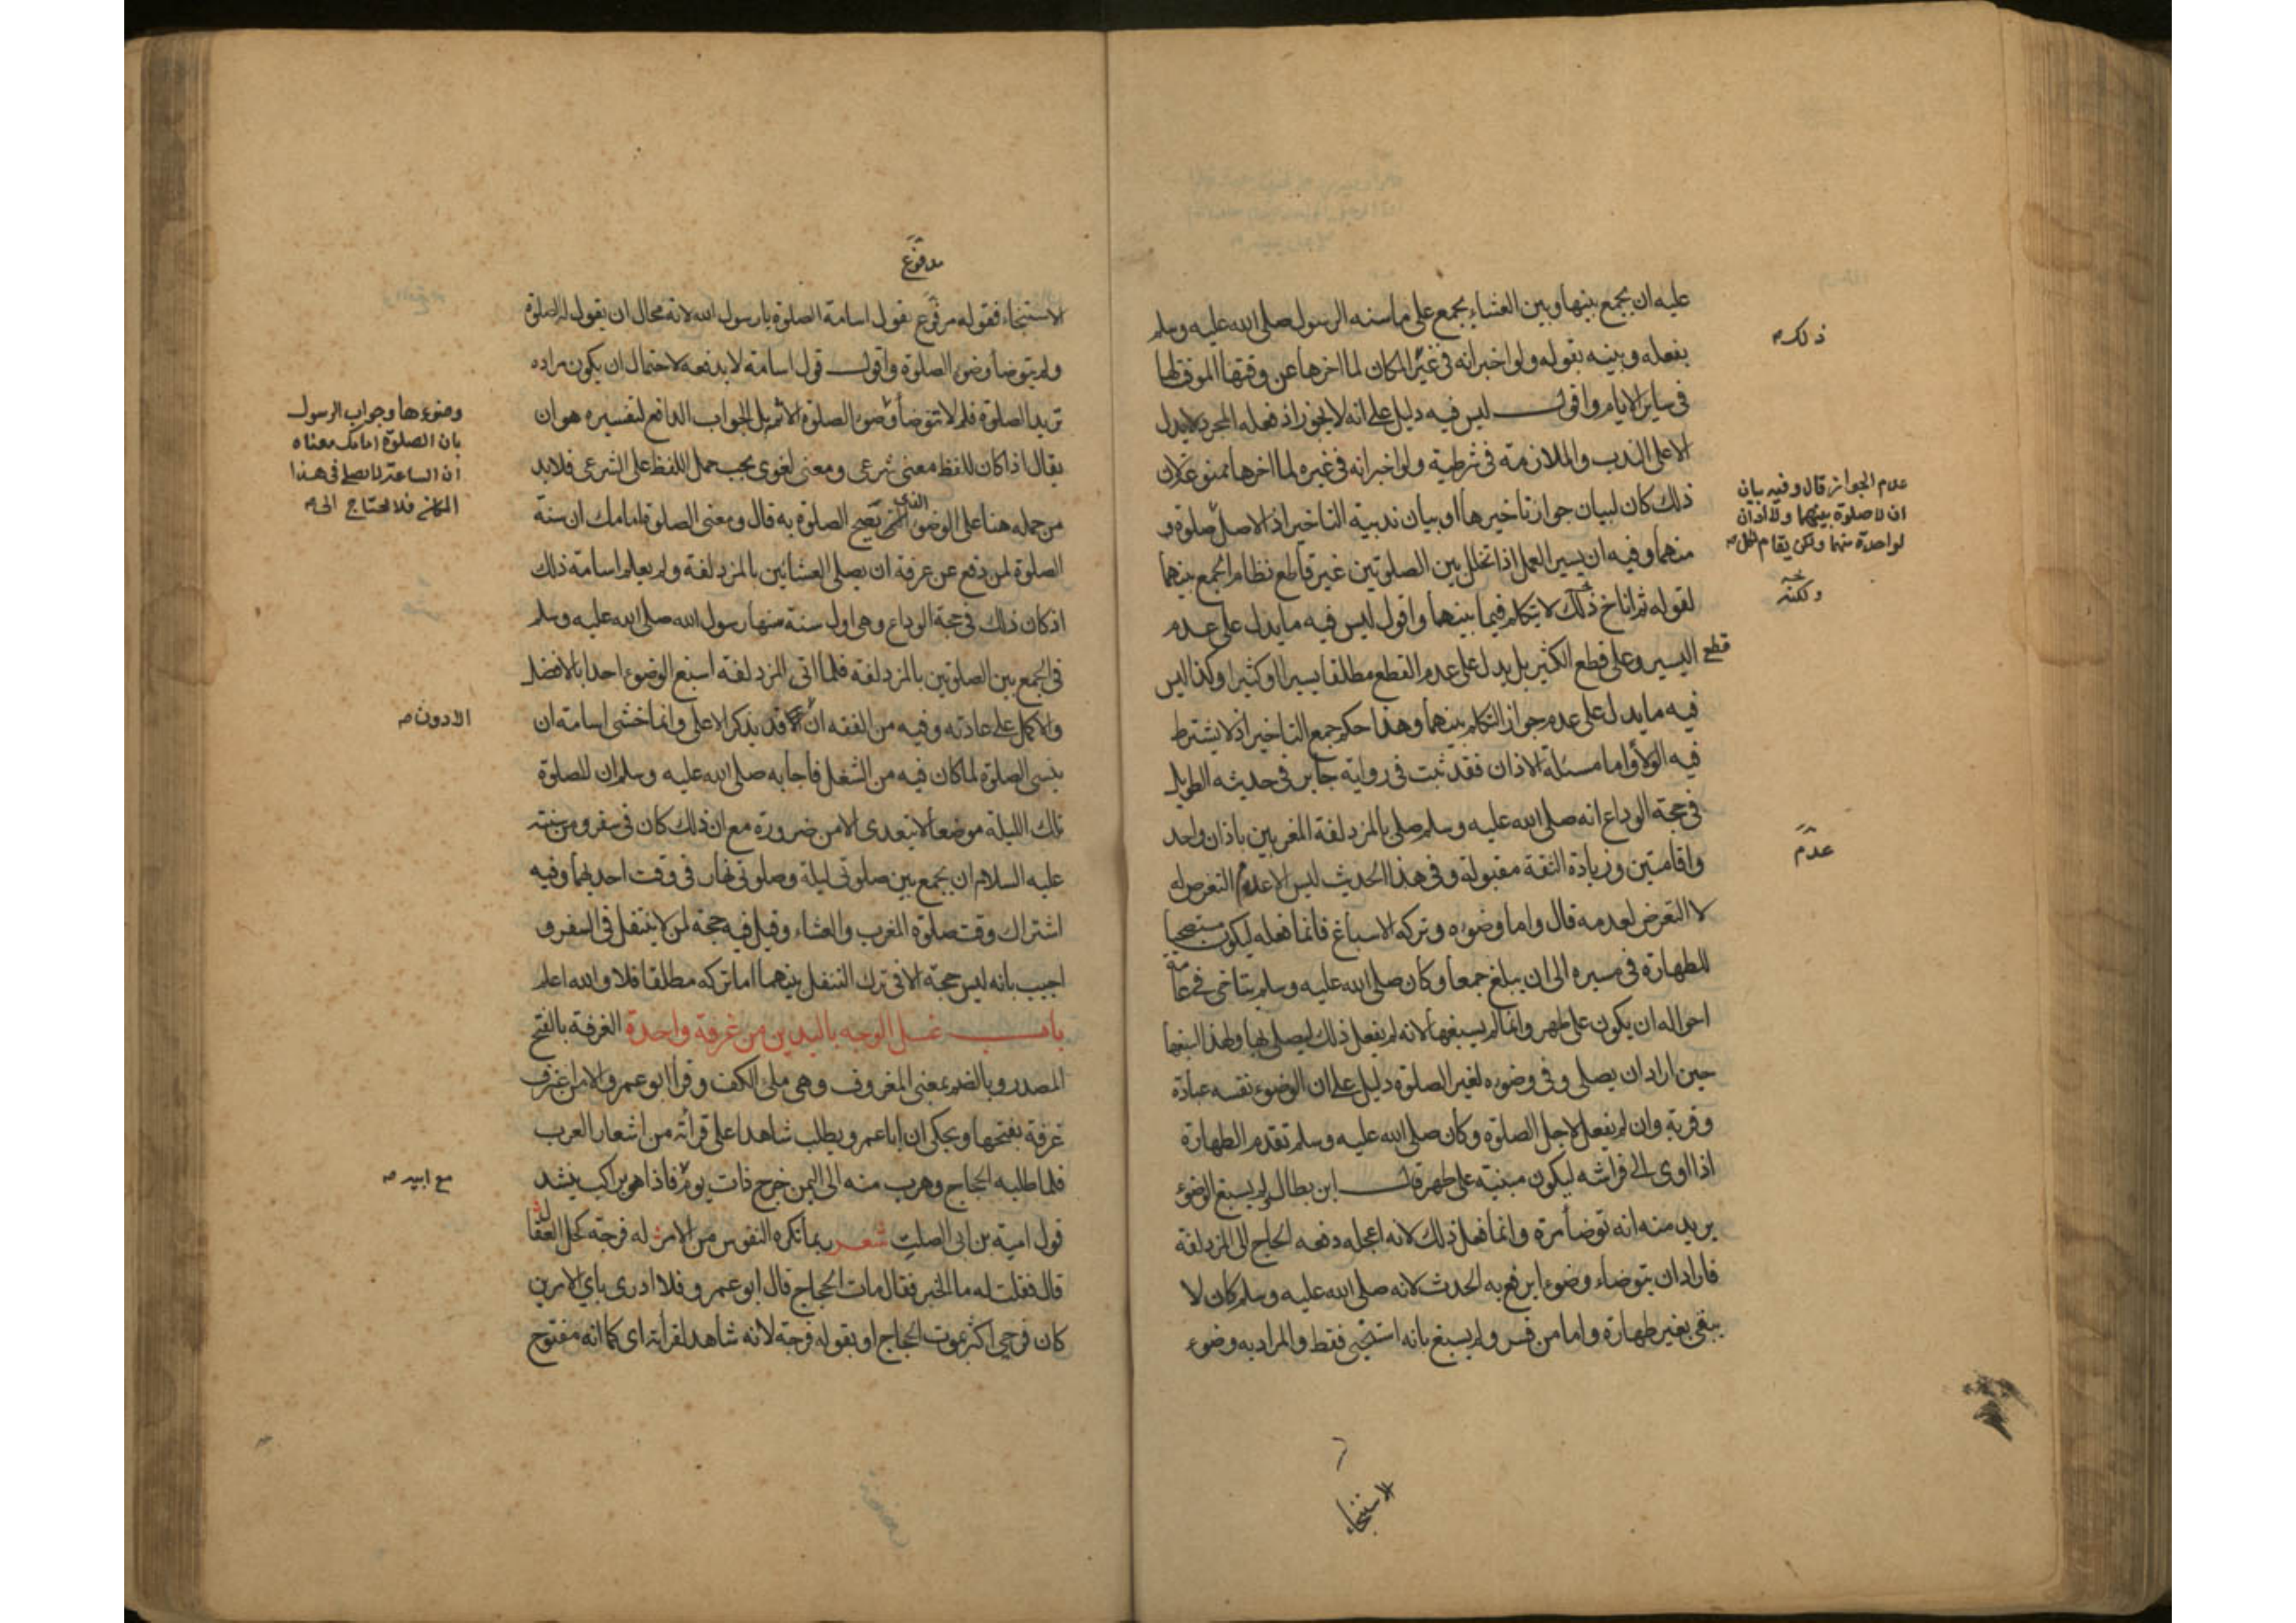 عليه ان يجمع بينها وبين العشاء يجمع على ما سنه الرسول صلى الله عليه وسلم
بفعله وبينه بقوله ولو اخبر انه في غير المكان لما اخرها عن وقتها الموقت لها
في ساير الايام واقول ليس فيه دليل على انه لا يجوز اذ فعله المجرد لا يدل
الا على الندب والملازمة في شرطية ولو اخبر انه في غيره لما اخرها ممنوعة لان
ذلك كان لبيان جواز تاخيرها او بيان ندبية التاخير اذ الاصل صلوة و
منهما وفيه ان يسير العمل اذا تخلل بين الصلوتين غير قاطع نظام الجمع بينهما
لقوله ثم اناخ ذلك لا يتكلم فيما بينهما واقول ليس فيه ما يدل على عدم
قطع اليسير وعلى قطع الكثير بل يدل على عدم القطع مطلقا يسيرا او كثيرا وكذا ليس
فيه ما يدل على عدم جواز التكلم بينهما وهذا حكم جمع التاخير اذ لا يشترط
فيه الولاء واما مسئلة الاذان فقد ثبت في رواية جابر في حديثه الطويل
في حجة الوداع انه صلى الله عليه وسلم صلى بالمزدلفة المغربين باذان واحد
واقامتين وزيادة الثقة مقبولة وفي هذا الحديث ليس الا عدم التعرض له
لا التعرض لعدمه قال واما وضوه وتركه الاسباغ فانما فعله ليكون مستصحبا
للطهارة في مسيره الى ان يبلغ جمعا وكان صلى الله عليه وسلم يتاخى في عامة
احواله ان يكون على طهر وانما لم يسبغها لانه لم يفعل ذلك ليصلي بها ولهذا اسبغها
حين اراد ان يصلي وفي وضوه لغير الصلوة دليل على ان الوضوء نفسه عبادة
وقربة وان لم يفعل لاجل الصلوة وكان صلى الله عليه وسلم تقدم الطهارة
اذا اوى الى فراشه ليكون مبيته على طهر قال ابن بطال ولم يسبغ الوضوء
يريد منه انه توضأ مرة وانما فعل ذلك لانه اعجله دفعه الحاج الى المزدلفة
فاراد ان يتوضاء وضوءا يرفع به الحدث لانه صلى الله عليه وسلم كان لا
يبقى بغير طهارة واما من فسر ولم يسبغ بانه استنجى فقط والمراد به وضوء
ذلك
عدم الجواز قال وفيه بيان
ان لا صلوة بينهما ولا اذان
لواحدة منهما ولكن يقام لكل
ولكنه
عدم
الاستنجاء
مدفوع
الاستنجاء فقوله مرفوع بقول اسامة الصلوة يا رسول الله لانه محال ان يقول له الصلوة
ولم يتوضأ وضوء الصلوة واقول قول اسامة لا يدفعه لاحتمال ان يكون مراده
تريد الصلوة فلم لا تتوضأ وضوء الصلوة الاثم بل الجواب الدافع لتفسيره هو ان
يقال اذا كان للفظ معنى شرعي ومعنى لغوي يجب حمل اللفظ على الشرعي فلا بد
من حمله هنا على الوضوء الذي تصح الصلوة به قال ومعنى الصلوة امامك ان سنة
الصلوة لمن دفع عن عرفة ان يصلي العشائين بالمزدلفة ولم يعلم اسامة ذلك
اذ كان ذلك في حجة الوداع وهي اول سنة سنها رسول الله صلى الله عليه وسلم
في الجمع بين الصلوتين بالمزدلفة فلما اتى المزدلفة اسبغ الوضوء اخذا بالافضل
والاكمل على عادته وفيه من الفقه ان قد يذكر الاعلى وانما خشي اسامة ان
ينسى الصلوة لما كان فيه من الشغل فاجابه صلى الله عليه وسلم ان للصلوة
تلك الليلة موضعا لا يتعدى الا من ضرورة مع ان ذلك كان في سفر ومن سنته
عليه السلام ان يجمع بين صلوتي ليلة وصلوتي نهار في وقت احديهما وفيه
اشتراك وقت صلوة المغرب والعشاء وقيل فيه حجة لمن لا يتنفل في السفر و
اجيب بانه ليس حجة الا في ترك التنفل بينهما اما تركه مطلقا فلا والله اعلم
باب غسل الوجه باليدين من غرفة واحدة الغرفة بالفتح
المصدر وبالضم بمعنى المغروف وهي ملئ الكف وقرأ ابو عمرو الا من اغترف
غرفة بفتحها ويحكى ان ابا عمرو يطلب شاهدا على قراته من اشعار العرب
فلما طلبه الحجاج وهرب منه الى اليمن خرج ذات يوم فاذا هو براكب ينشد
قول امية بن ابي الصلت شعر ربما تكره النفوس من الامر له فرجة كحل العقال
قال فقلت له ما الخبر فقال مات الحجاج قال ابو عمرو فلا ادري باي الامرين
كان فرحي اكثر بموت الحجاج او بقوله فرجة لانه شاهد لقراته اي كما انه مفتوح
وضوءها وجواب الرسول
بان الصلوة امامك معناه
ان الساعة لا نصلي في هذا
المكان فلا تحتاج الى
الادون
مع ابيه